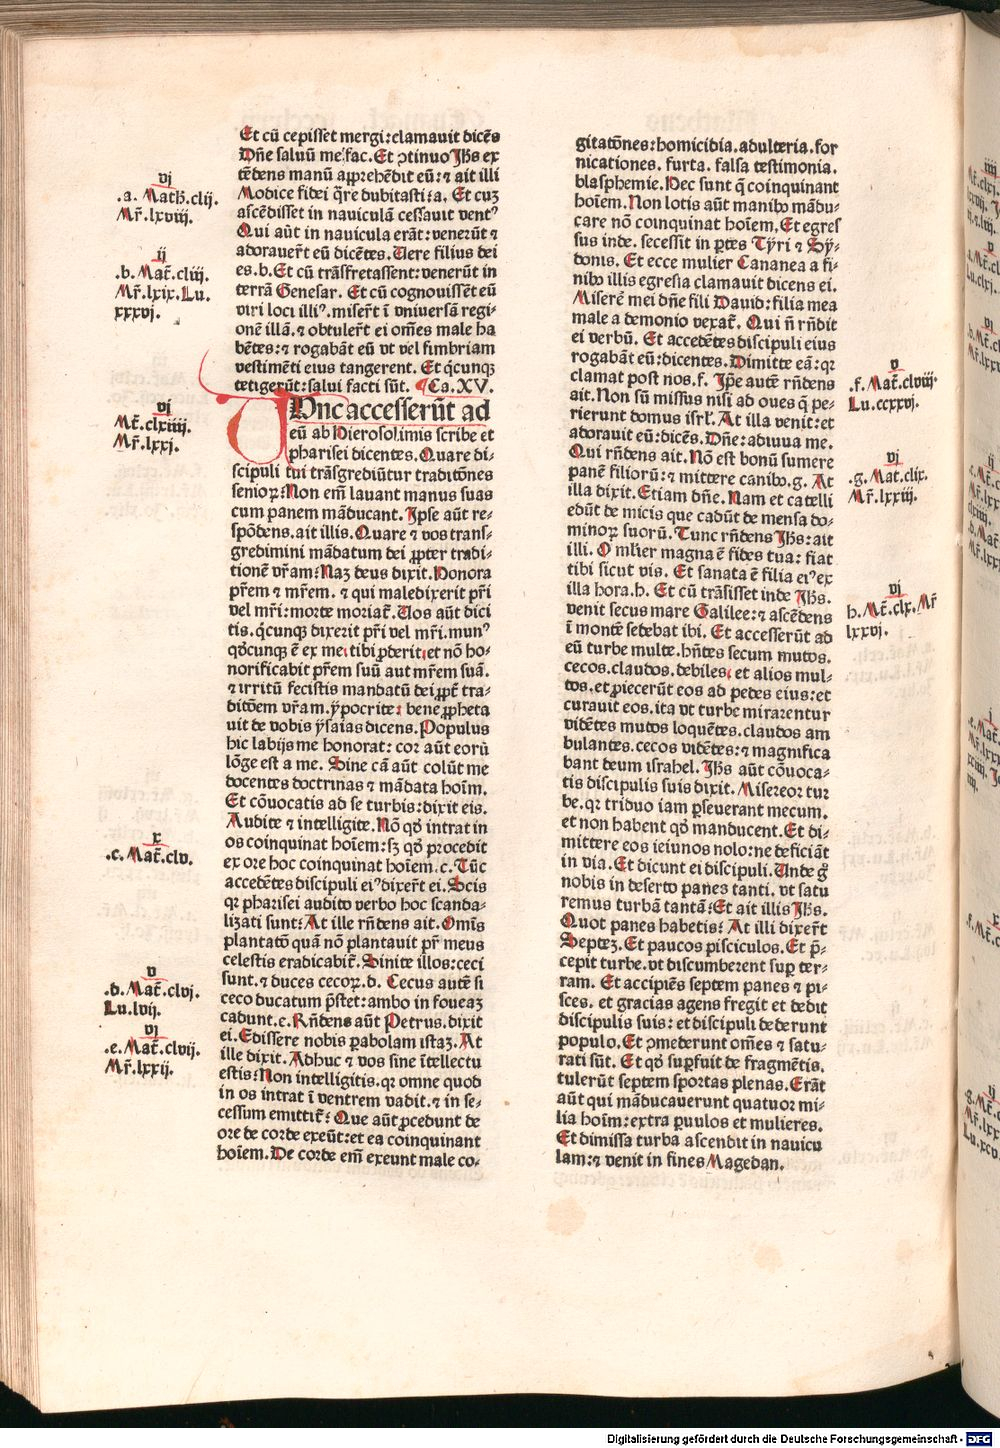 Et cū cepisset mergi: clamauit dicēs
Dn̄e saluū me fac. Et ꝯtinuo Jh̄s ex
tēdens manū apprehēdit eū: ⁊ ait illi
Modice fidei q̄re dubitasti: a. Et cuꝫ
ascēdisset in nauiculā cessauit ventꝰ
Qui aūt in nauicula erāt: venerūt ⁊
adorauer̄t eū dicētes. Uere filius dei
es. b. Et cū trāsfretassent: venerūt in
terrā Genesar. Et cū cognouissēt eū
viri loci illiꝰ. miser̄t ī vniuersā regi-
onē illā. ⁊ obtuler̄t ei om̄es male ha
bētes: ⁊ rogabāt eū vt vel fimbriam
vestimēti eius tangerent. Et q̄cunqꝫ
tetigerūt: salui facti sūt. ¶ Ca. XV.
TUnc accesserūt ad
eū ab Hierosolimis scribe et
pharisei dicentes. Quare di-
scipuli tui trāsgrediūtur traditōnes
senioꝝ: Non em̄ lauant manus suas
cum panem māducant. Ipse aūt re-
spōdens. ait illis. Quare ⁊ vos trans-
gredimini mādatum dei ꝓpter tradi-
tionē vr̄am: Naꝫ deus dixit. Honora
pr̄em ⁊ mr̄em. ⁊ qui maledixerit pr̄i
vel mr̄i: morte moriat̄. Uos aūt dici
tis. q̄cunqꝫ dixerit pr̄i vel mr̄i. munꝰ
qd̄cunqꝫ ē ex me: tibi ꝓderit: et nō ho-
norificabit pr̄em suū aut mr̄em suā.
⁊ irritū fecistis mandatū dei ꝓpt̄ tra-
ditōem vr̄am. ypocrite: bene ꝓpheta
uit de vobis ysaias dicens. Populus
hic labijs me honorat: cor aūt eorū
lōge est a me. Sine cā aūt colūt me
docentes doctrinas ⁊ mādata hoīm.
Et cōuocatis ad se turbis: dixit eis.
Audite ⁊ intelligite. Nō qd̄ intrat in
os coinquinat hoīem: sꝫ qd̄ procedit
ex ore hoc coinquinat hoīem. c. Tūc
accedētes discipuli eiꝰ dixer̄t ei. Scis
qꝛ pharisei audito verbo hoc scanda-
lizati sunt: At ille rn̄dens ait. Omīs
plantatō quā nō plantauit pr̄ meus
celestis eradicabit̄. Sinite illos: ceci
sunt. ⁊ duces cecoꝝ. d. Cecus autē si
ceco ducatum p̄stet: ambo in foueaꝫ
cadunt. e. Rn̄dens aūt Petrus. dixit
ei. Edissere nobis ꝑabolam istaꝫ. At
ille dixit. Adhuc ⁊ vos sine ītellectu
estis: Non intelligitis. qꝛ omne quod
in os intrat ī ventrem vadit. ⁊ in se-
cessum emittit̄: Que aūt ꝓcedunt de
ore de corde exeūt: et ea coinquinant
hoīem. De corde em̄ exeunt male co-
vj
.a. Math. clij.
Mr̄. lxviij.
ij
.b. Mat̄. cliij.
Mr̄. lxix. Lu.
xxxvj.
vj
Mt̄. cliiij.
Mr̄. lxxj.
x
.c. Mat̄. clv.
v
.d. Mat̄. clvj.
Lu. lvij.
vj
.e. Mat̄. clvij.
Mr̄. lxxij.
gitatōnes: homicidia. adulteria. for
nicationes. furta. falsa testimonia.
blasphemie. Hec sunt q̄ coinquinant
hoīem. Non lotis aūt manibꝰ mādu-
care nō coinquinat hoīem. Et egres
sus inde. secessit in ꝑtes Tyri ⁊ Sy-
donis. Et ecce mulier Cananea a fi-
nibꝰ illis egressa clamauit dicens ei.
Miserē mei dn̄e fili Dauid: filia mea
male a demonio vexat̄. Qui n̄ rn̄dit
ei verbū. Et accedētes discipuli eius
rogabāt eū: dicentes. Dimitte eā: qꝛ
clamat post nos. f. Ip̄e autē rn̄dens
ait. Non sū missus nisi ad oues q̄ pe-
rierunt domus isrl̄. At illa venit: et
adorauit eū: dicēs. Dn̄e: adiuua me.
Qui rn̄dens ait. Nō est bonū sumere
panē filiorū: ⁊ mittere canibꝰ. g. At
illa dixit. Etiam dn̄e. Nam et catelli
edūt de micis que cadūt de mensa do-
minoꝝ suorū. Tunc rn̄dens Jh̄s: ait
illi. O ml̄ier magna ē fides tua: fiat
tibi sicut vis. Et sanata ē filia eiꝰ ex
illa hora. h. Et cū trāsisset inde Jh̄s.
venit secus mare Galilee: ⁊ ascēdens
ī montē sedebat ibi. Et accesserūt ad
eū turbe multe. hn̄tes secum mutos.
cecos. claudos. debiles: et alios mul-
tos. et ꝓiecerūt eos ad pedes eius: et
curauit eos. ita vt turbe mirarentur
vidētes mutos loquētes. claudos am
bulantes. cecos vidētes: ⁊ magnifica
bant deum israhel. Jh̄s aūt cōuoca-
tis discipulis suis dixit. Misereor tur
be. qꝛ triduo iam ꝑseuerant mecum.
et non habent qd̄ manducent. Et di-
mittere eos ieiunos nolo: ne deficiāt
in via. Et dicunt ei discipuli. Unde gͦ
nobis in deserto panes tanti. vt satu
remus turbā tantā: Et ait illis Jh̄s.
Quot panes habetis: At illi dixer̄t
Septeꝫ. Et paucos pisciculos. Et p̄-
cepit turbe. vt discumberent suꝑ ter-
ram. Et accipiēs septem panes ⁊ pi-
sces. et gracias agens fregit et dedit
discipulis suis: et discipuli dederunt
populo. Et ꝯmederunt om̄es ⁊ satu-
rati sūt. Et qd̄ suꝑfuit de fragmētis.
tulerūt septem sportas plenas. Erāt
aūt qui māducauerunt quatuor mi-
lia hoīm: extra ꝑuulos et mulieres.
Et dimissa turba ascendit in nauicu
lam: ⁊ venit in fines Magedan.
v
.f. Mat̄. clviij.
Lu. ccxxvj.
vj
.g. Mat. clix.
Mr̄. lxxiij.
vj
h. Mt̄. clx. Mr̄
lxxvj.
Digitalisierung gefördert durch die Deutsche Forschungsgemeinschaft - DFG